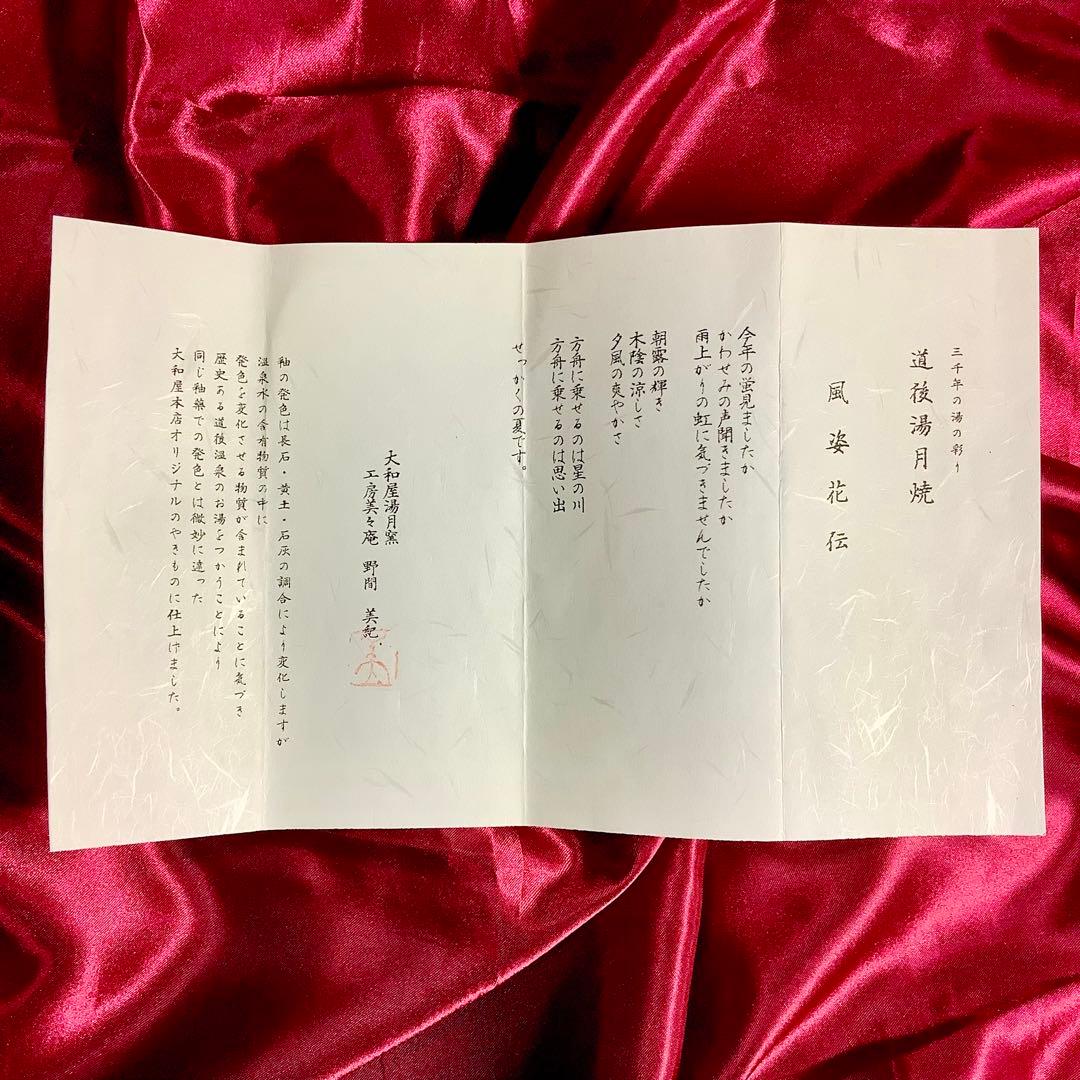 三千年の湯の彩り
道後湯月焼
風姿花伝
今年の蛍見ましたか
かわせみの声聞きましたか
雨上がりの虹に気づきませんでしたか
朝露の輝き
木陰の涼しさ
夕風の爽やかさ
方舟に乗せるのは星の川
方舟に乗せるのは思い出
せっかくの夏です。
大和屋湯月窯
工房美々庵 野間 美紀
釉の発色は長石・黄土・石灰の調合により変化しますが
温泉水の含有物質の中に
発色を変化させる物質が含まれていることに気づき
歴史ある道後温泉のお湯をつかうことにより
同じ釉薬での発色とは微妙に違った
大和屋本店オリジナルのやきものに仕上げました。